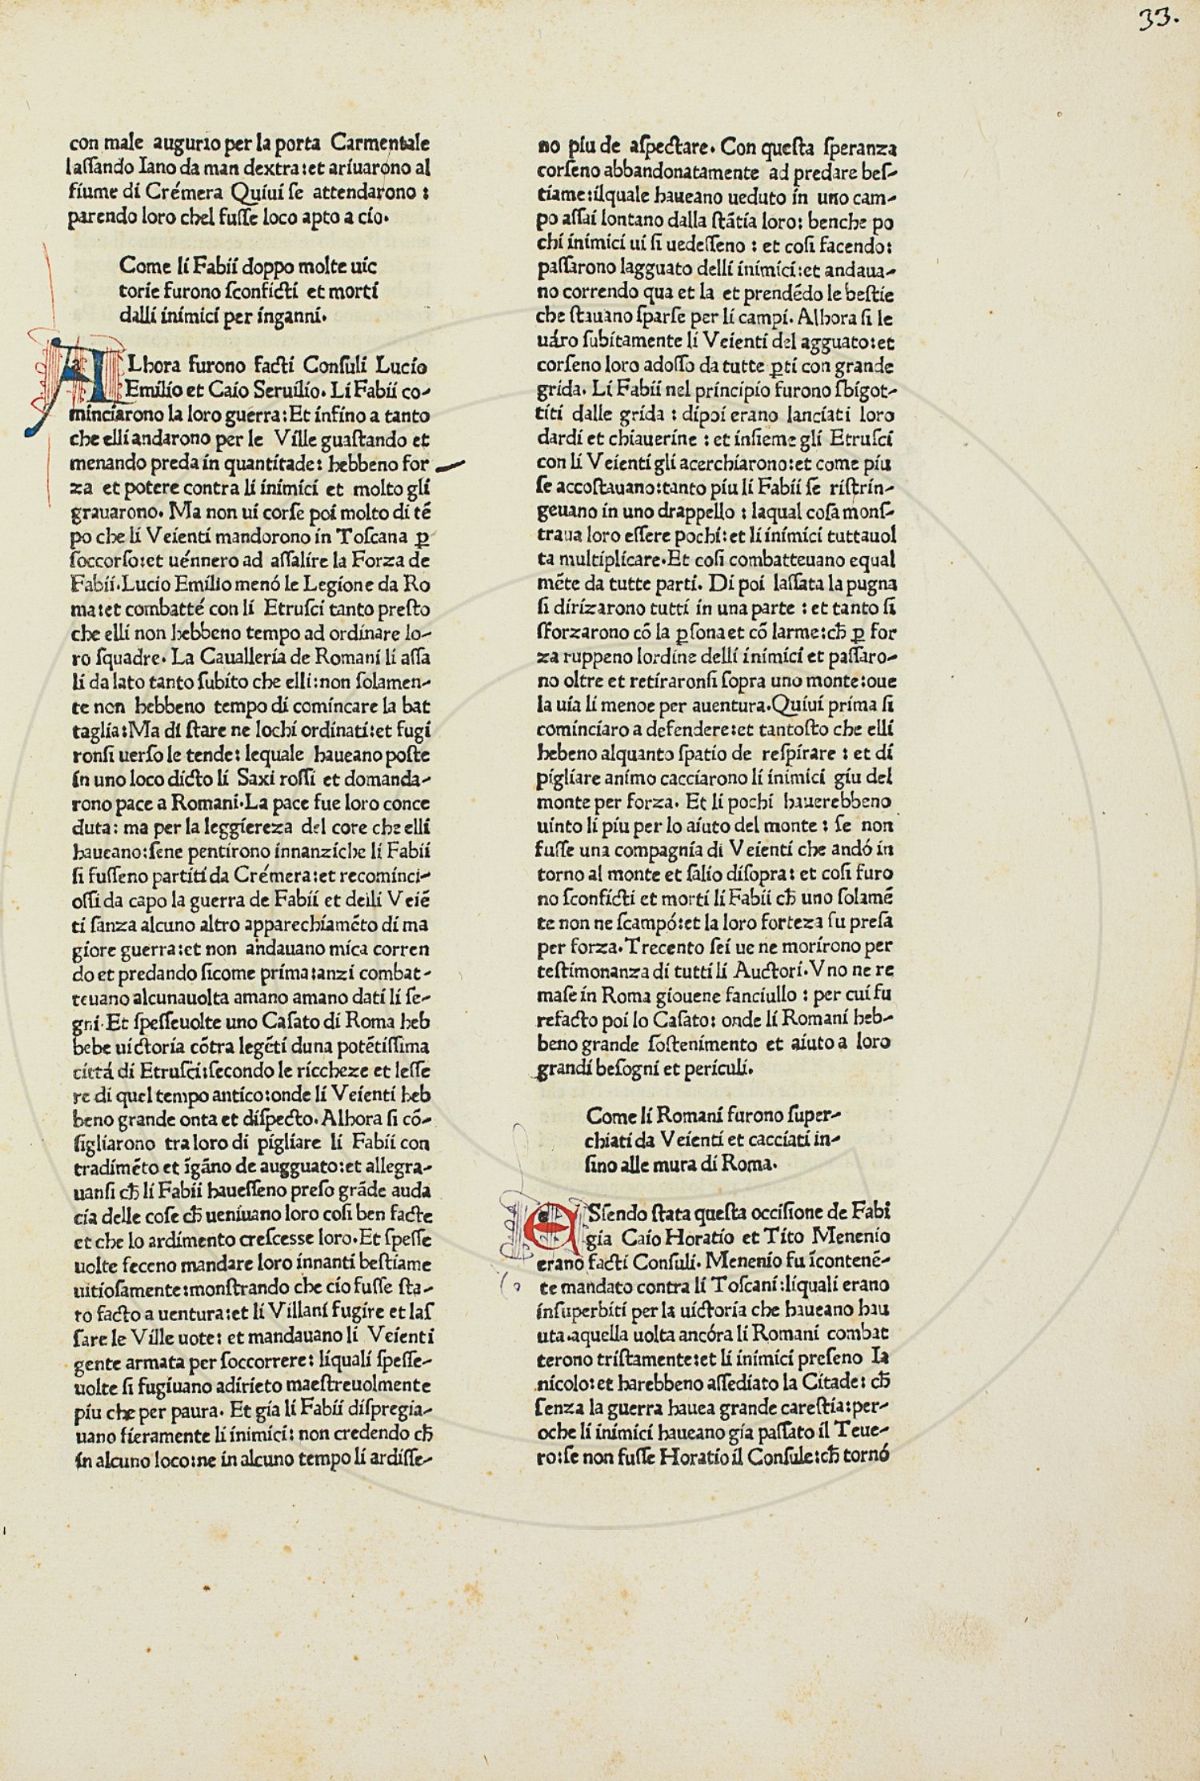 33.
con male augurio per la porta Carmentale
laſſando Iano da man dextra:et ariuarono al
fiume di Crémera Quiui ſe attendarono :
parendo loro chel fuſſe loco apto a cio.
Come li Fabii doppo molte uic
torie furono ſconficti et morti
dalli inimici per inganni.
ALhora furono facti Conſuli Lucio
Emilio et Caio Seruilio. Li Fabii co-
minciarono la loro guerra:Et infino a tanto
che elli andarono per le Ville guaſtando et
menando preda in quantitade: hebbeno for
za et potere contra li inimici et molto gli
grauarono. Ma non ui corſe poi molto di tē
po che li Veienti mandorono in Toſcana ꝑ
ſoccorſo:et uénnero ad aſſalire la Forza de
Fabii.Lucio Emilio menó le Legione da Ro
ma:et combatté con li Etruſci tanto preſto
che elli non hebbeno tempo ad ordinare lo-
ro ſquadre. La Cauallería de Romani li aſſa
li da lato tanto ſubito che elli:non ſolamen-
te non hebbeno tempo di comincare la bat
taglia:Ma di ſtare ne lochi ordinati:et fugi
ronſi uerſo le tende: lequale haueano poſte
in uno loco dicto li Saxi roſſi et domanda-
rono pace a Romani.La pace fue loro conce
duta: ma per la leggiereza del core che elli
haueano:ſene pentirono innanziche li Fabii
ſi fuſſeno partiti da Crémera:et recominci-
oſſi da capo la guerra de Fabii et delli Veiē
ti ſanza alcuno altro apparechiamēto di ma
giore guerra:et non andauano mica corren
do et predando ſicome prima:anzi combat-
teuano alcunauolta amano amano dati li ſe-
gni. Et ſpeſſeuolte uno Caſato di Roma heb
bebe uictoria cōtra legēti duna potētiſſima
cittá di Etruſci:ſecondo le riccheze et leſſe
re di quel tempo antico:onde li Veienti heb
beno grande onta et diſpecto. Alhora ſi cō-
ſigliarono tra loro di pigliare li Fabii con
tradimēto et īgāno de augguato:et allegra-
uanſi cħ li Fabii haueſſeno preſo grāde auda
cia delle coſe cħ ueniuano loro coſi ben facte
et che lo ardimento creſceſſe loro. Et ſpeſſe
uolte feceno mandare loro innanti beſtiame
uitioſamente:monſtrando che cio fuſſe ſta-
to facto a uentura:et li Villani fugire et laſ
ſare le Ville uote: et mandauano li Veienti
gente armata per ſoccorrere: liquali ſpeſſe-
uolte ſi fugiuano adirieto maeſtreuolmente
piu che per paura. Et gia li Fabii diſpregia-
uano fieramente li inimici: non credendo cħ
in alcuno loco:ne in alcuno tempo li ardiſſe-
no piu de aſpectare. Con queſta ſperanza
corſeno abbandonatamente ad predare beſ-
tiame:ilquale haueano ueduto in uno cam-
po aſſai lontano dalla ſtātia loro: benche po
chi inimici ui ſi uedeſſeno : et coſi facendo:
paſſarono lagguato delli inimici:et andaua-
no correndo qua et la et prendēdo le beſtie
che ſtauano ſparſe per li campi. Alhora ſi le
uáro ſubitamente li Veienti del agguato:et
corſeno loro adoſſo da tutte ꝑti con grande
grida. Li Fabii nel principio furono ſbigot-
titi dalle grida : dipoi erano lanciati loro
dardi et chiauerine : et inſieme gli Etruſci
con li Veienti gli acerchiarono:et come piu
ſe accoſtauano:tanto piu li Fabii ſe riſtrin-
geuano in uno drappello : laqual coſa monſ-
traua loro eſſere pochi:et li inimici tuttauol
ta multiplicare.Et coſi combatteuano equal
mēte da tutte parti. Di poi laſſata la pugna
ſi dirizarono tutti in una parte : et tanto ſi
ſforzarono cō la ꝑſona et cō larme:cħ ꝑ for
za ruppeno lordine delli inimici et paſſaro-
no oltre et retiraronſi ſopra uno monte:oue
la uia li menoe per auentura.Quiui prima ſi
cominciaro a defendere:et tantoſto che elli
hebeno alquanto ſpatio de reſpirare : et di
pigliare animo cacciarono li inimici giu del
monte per forza. Et li pochi hauerebbeno
uinto li piu per lo aiuto del monte : ſe non
fuſſe una compagnia di Veienti che andó in
torno al monte et ſalio diſopra: et coſi furo
no ſconficti et morti li Fabii cħ uno ſolamē
te non ne ſcampó:et la loro forteza fu preſa
per forza.Trecento ſei ue ne morirono per
teſtimonanza di tutti li Auctori.Vno ne re
maſe in Roma giouene fanciullo : per cui fu
refacto poi lo Caſato: onde li Romani heb-
beno grande ſoſtenimento et aiuto a loro
grandi beſogni et periculi.
Come li Romani furono ſuper-
chiati da Veienti et cacciati in-
ſino alle mura di Roma.
ESſendo ſtata queſta occiſione de Fabi
gia Caio Horatio et Tito Menenio
erano facti Conſuli. Menenio fu īcontenē-
te mandato contra li Toſcani :liquali erano
inſuperbiti per la uictoria che haueano hau
uta.aquella uolta ancóra li Romani combat
terono triſtamente:et li inimici preſeno Ia
nicolo:et harebbeno aſſediato la Citade: cħ
ſenza la guerra hauea grande careſtia:per-
oche li inimici haueano gia paſſato il Teue-
ro:ſe non fuſſe Horatio il Conſule:cħ tornó